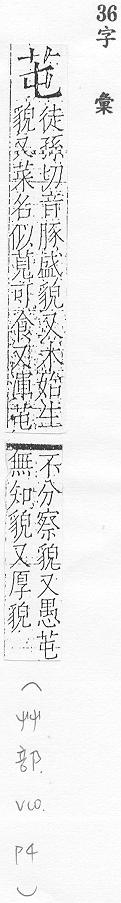 36字彙
芚
徒孫切音豚盛貌又木始生
貌又菜名似莧可食又渾芚
不分察貌又愚芚
無知貌又厚貌
(艸部. vco. p4)